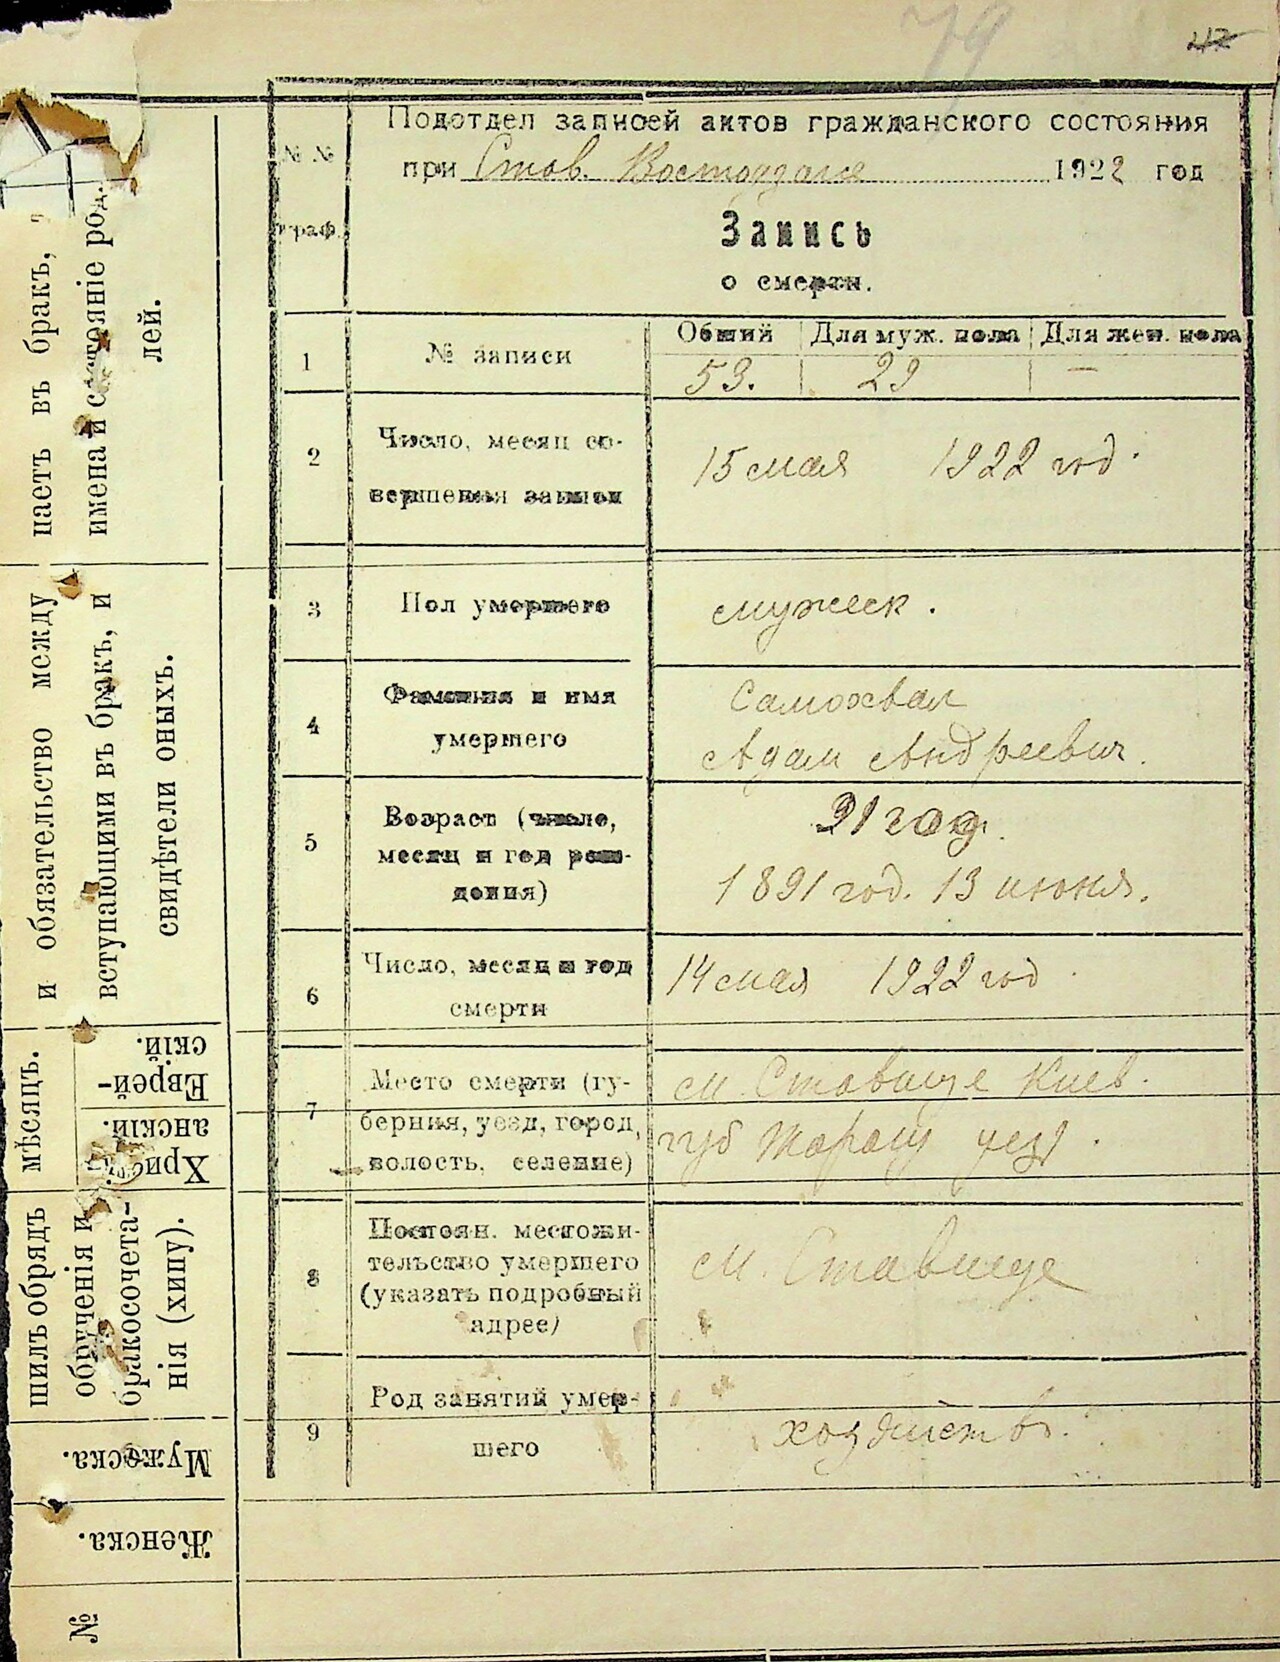 79
42
Подотдел записей актов гражданского состояния
№ №
граф.
при Став. 1922 год
Запись
о смерти.
1
№ записи
Общий Для муж. пола Для жен. пола
53. 29 —
2
Число, месяц со-
вершения записи
15 мая 1922 год.
3
Пол умершего
мужеск.
4
Фамилия и имя
умершего
Самохвал
Адам Андреевич.
5
Возраст (число,
месяц и год рож-
дения)
31 год.
1891 год. 13 июня.
6
Число, месяц и год
смерти
14 мая 1922 год
7
Место смерти (гу-
берния, уезд, город,
волость, селение)
м. Ставище Киев.
губ Таращ уезд.
8
Постоян. местожи-
тельство умершего
(указать подробный
адрес)
м. Ставище
9
Род занятий умер-
шего
хозяйств.
пастъ въ бракъ,
имена и состояніе род.
лей.
и обязательство между
вступающими въ бракъ, и
свидѣтели оныхъ.
мѣсяцъ.
Еврей-
скій.
Христі-
анскій.
шилъ обрядъ
обрученія и
бракосочета-
нія (хипу).
Мужеска.
Женска.
№